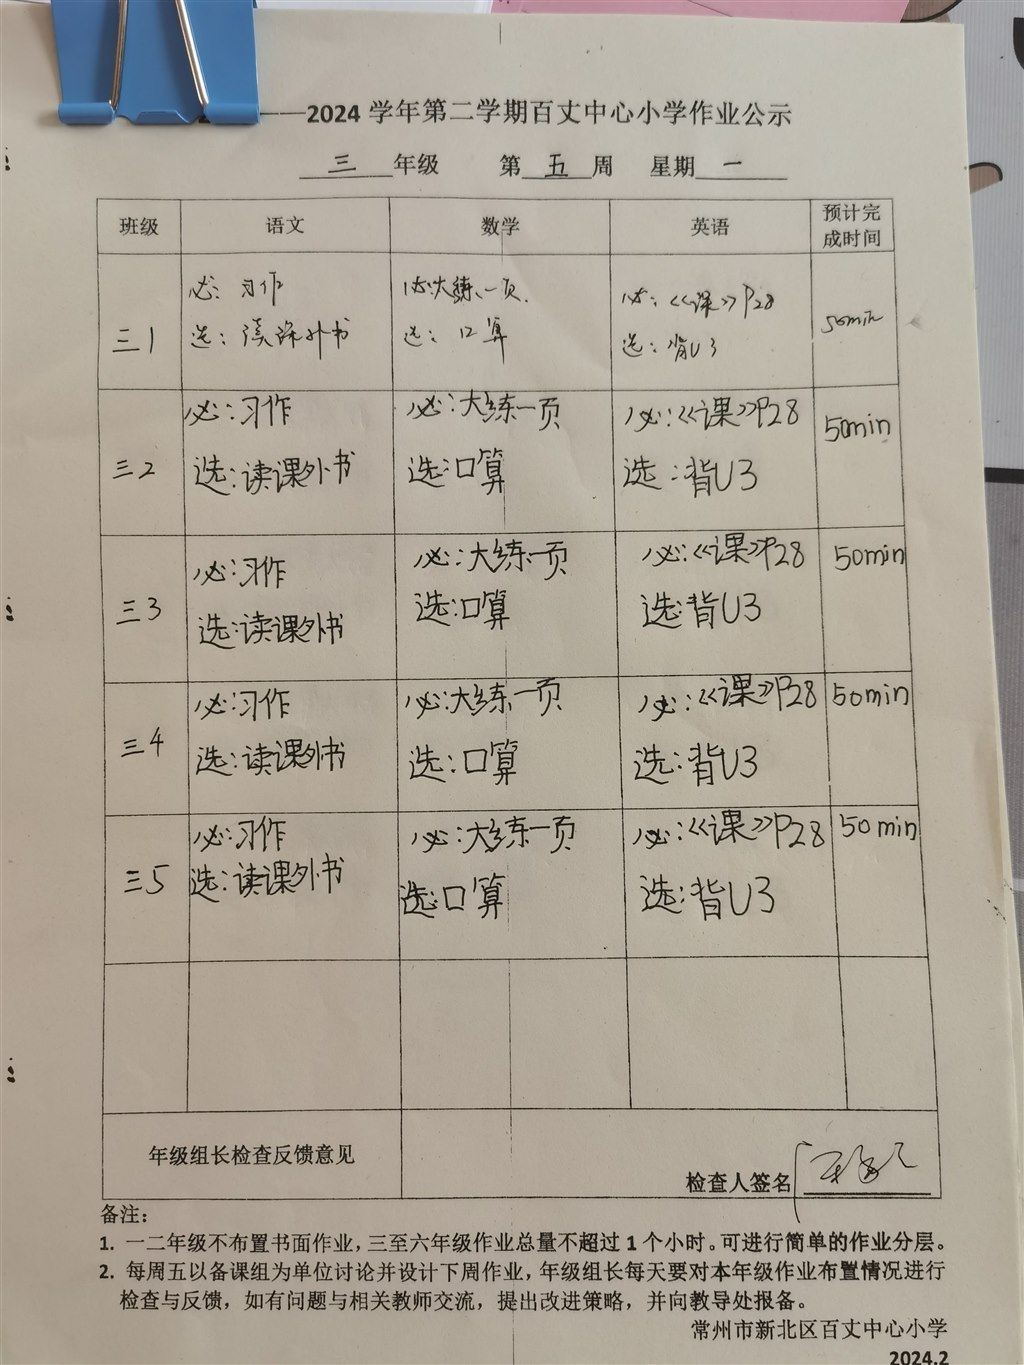 ——2024 学年第二学期百丈中心小学作业公示
三 年级 第 五 周 星期 一
班级 语文 数学 英语 预计完成时间
必: 习作 必:大练一页. 必:《课》P28
三1 选: 读课外书 选: 口算 选: 背U3 50min
必:习作 必:大练一页 必:《课》P28 50min
三2 选:读课外书 选:口算 选:背U3
必:习作 必:大练一页 必:《课》P28 50min
三3 选:读课外书 选:口算 选:背U3
必:习作 必:大练一页 必:《课》P28 50min
三4 选:读课外书 选:口算 选:背U3
必:习作 必:大练一页 必:《课》P28 50min
三5 选:读课外书 选:口算 选:背U3
年级组长检查反馈意见
检查人签名
备注:
1. 一二年级不布置书面作业，三至六年级作业总量不超过 1 个小时。可进行简单的作业分层。
2. 每周五以备课组为单位讨论并设计下周作业，年级组长每天要对本年级作业布置情况进行
检查与反馈，如有问题与相关教师交流，提出改进策略，并向教导处报备。
常州市新北区百丈中心小学
2024.2